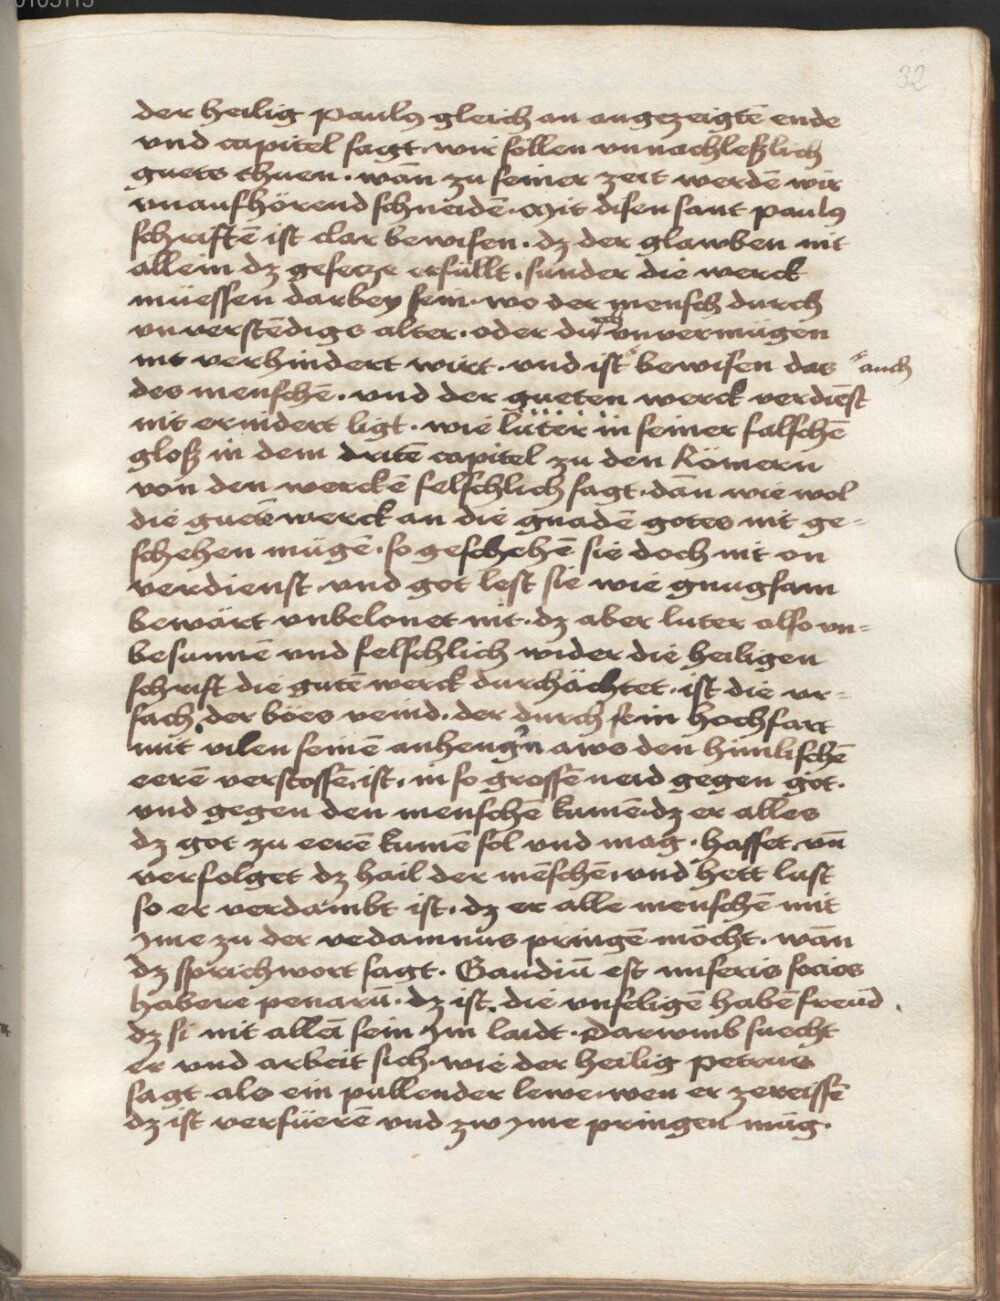 32
der heilig paulus gleich an angezeigtē ende
vnd capitel sagt. wir söllen vnnachleßlich
guets thuen. wān zu seiner zeit werdē wir
vnaufhörend schneidē. Mit disen sant paulus
schriftē ist clar bewisen. dz der glawben nit
allein dz gesetze erfüllt. sunder die werck
müessen darbey sein. wo der mensch durch
vnverstēdigs alter. oder durch vnvermügen
nit verhindert wirt. vnd ist bewisen das auch
des menschē. vnd der gueten werck verdiēst
nit ernidert ligt. wie lüter in seiner falschē
gloß in dem dritē capitel zu den Römern
von den werckē felschlich sagt. dān wie wol
die guetē werck an die gnadē gotes nit ge-
schehen mügē. so geschehē sie doch nit on
verdienst. vnd got lest sie wie gnugsam
bewärt vnbelonet nit. dz aber luter also vn-
besunnē vnd felschlich wider die heiligen
schrift die gutē werck durchächtet. ist die vr-
sach, der böes veind. der durch sein hochfart
mit vilen seinē anhengrn aws den himlischē
eerē verstossē ist. in so grossē neid gegen got.
vnd gegen den menschē kumē. dz er alles
dz got zu eerē kumē sol vnd mag. hasset. vn̄
verfolget dz hail der mēschē. vnd hett lust
so er verdambt ist. dz er alle menschē mit
yme zu der vedamnus pringē möcht. wān
dz sprichwort sagt. Gaudiū est miseris socios
habere penarū. dz ist. die vnseligē habē freüd
dz si nit allei sein ym laidt. Darwmb suecht
er vnd arbeit sich. wie der heilig petrus
sagt als ein pullender lewe. wen er zereissē
dz ist verfüerē vnd zw yme pringen müg.